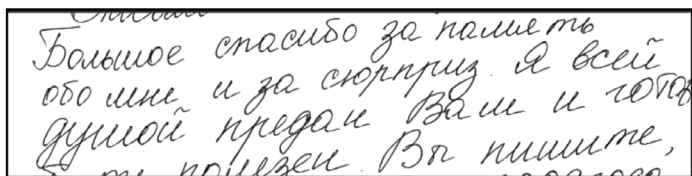 Большое спасибо за память
обо мне и за сюрприз. Я всей
душой предан Вам и готов
полезен. Вы пишите,